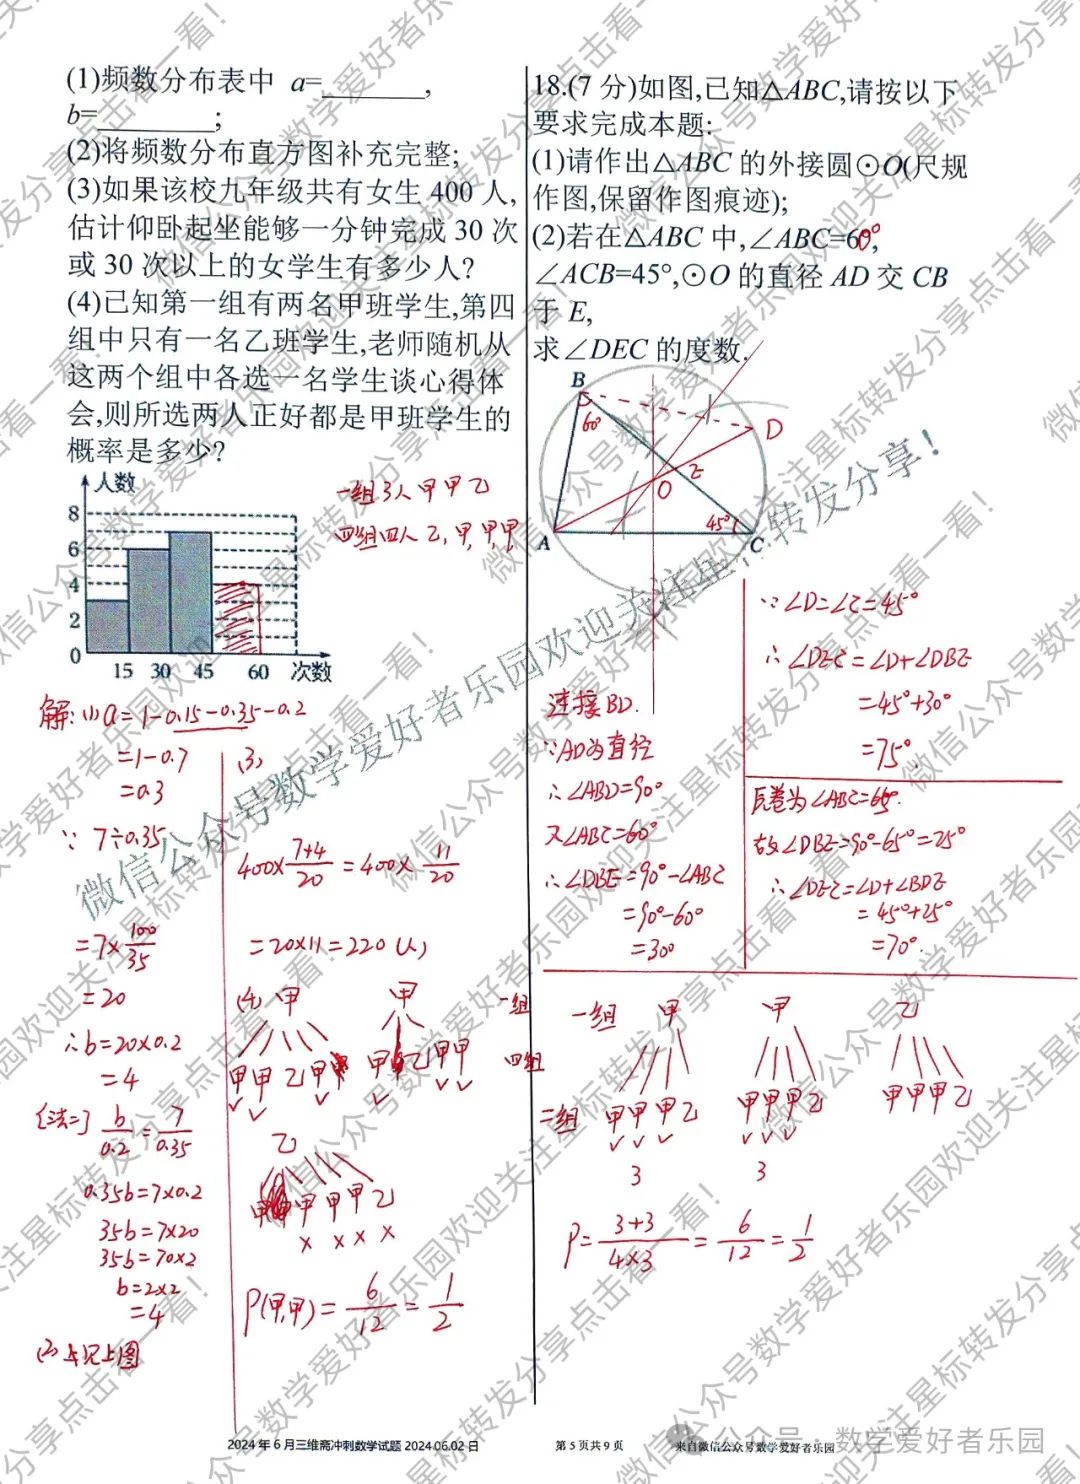 (1)频数分布表中 a=________,
b=________;
(2)将频数分布直方图补充完整;
(3)如果该校九年级共有女生 400 人,
估计仰卧起坐能够一分钟完成 30 次
或 30 次以上的女学生有多少人?
(4)已知第一组有两名甲班学生,第四
组中只有一名乙班学生,老师随机从
这两个组中各选一名学生谈心得体
会,则所选两人正好都是甲班学生的
概率是多少?
人数
8
6
4
2
0
15 30 45 60 次数
一组3人 甲 甲 乙
四组四人 乙,甲,甲,甲
解:(1) a=1-0.15-0.35-0.2
=1-0.7
=0.3
∵ 7÷0.35
=7×100/35
=20
∴b=20×0.2
=4
(法二) b/0.2=7/0.35
0.35b=7×0.2
35b=7×20
35b=70×2
b=2×2
=4
(2)见上图
(3)
400×(7+4)/20=400×11/20
=20×11=220(人)
(4) 甲 甲 一组
甲 甲 乙 甲 甲 乙 甲 甲 四组
乙
甲 甲 甲 乙
× × × ×
P(甲,甲)=6/12=1/2
18.(7 分)如图,已知△ABC,请按以下
要求完成本题:
(1)请作出△ABC 的外接圆⊙O(尺规
作图,保留作图痕迹);
(2)若在△ABC 中,∠ABC=60°,
∠ACB=45°,⊙O 的直径 AD 交 CB
于 E,
求∠DEC 的度数.
B
60°
D
E
O
45°
A
C
连接BD.
∵AD为直径
∴∠ABD=90°
又∠ABC=60°
∴∠DBE=90°-∠ABC
=90°-60°
=30°
∵∠D=∠C=45°
∴∠DEC=∠D+∠DBE
=45°+30°
=75°
原卷为∠ABC=65°.
故∠DBE=90°-65°=25°
∴∠DEC=∠D+∠BDE
=45°+25°
=70°.
一组 甲 甲 乙
二组 甲甲甲乙 甲甲甲乙 甲甲甲乙
3 3
P=(3+3)/(4×3)=6/12=1/2
2024 年 6 月三维斋冲刺数学试题 2024.06.02 日
第 5 页共 9 页
来自微信公众号数学爱好者乐园
公众号 · 数学爱好者乐园
微信公众号数学爱好者乐园欢迎关注星标转发分享!
微信公众号数学爱好者乐园欢迎关注星标转发分享点击看一看!